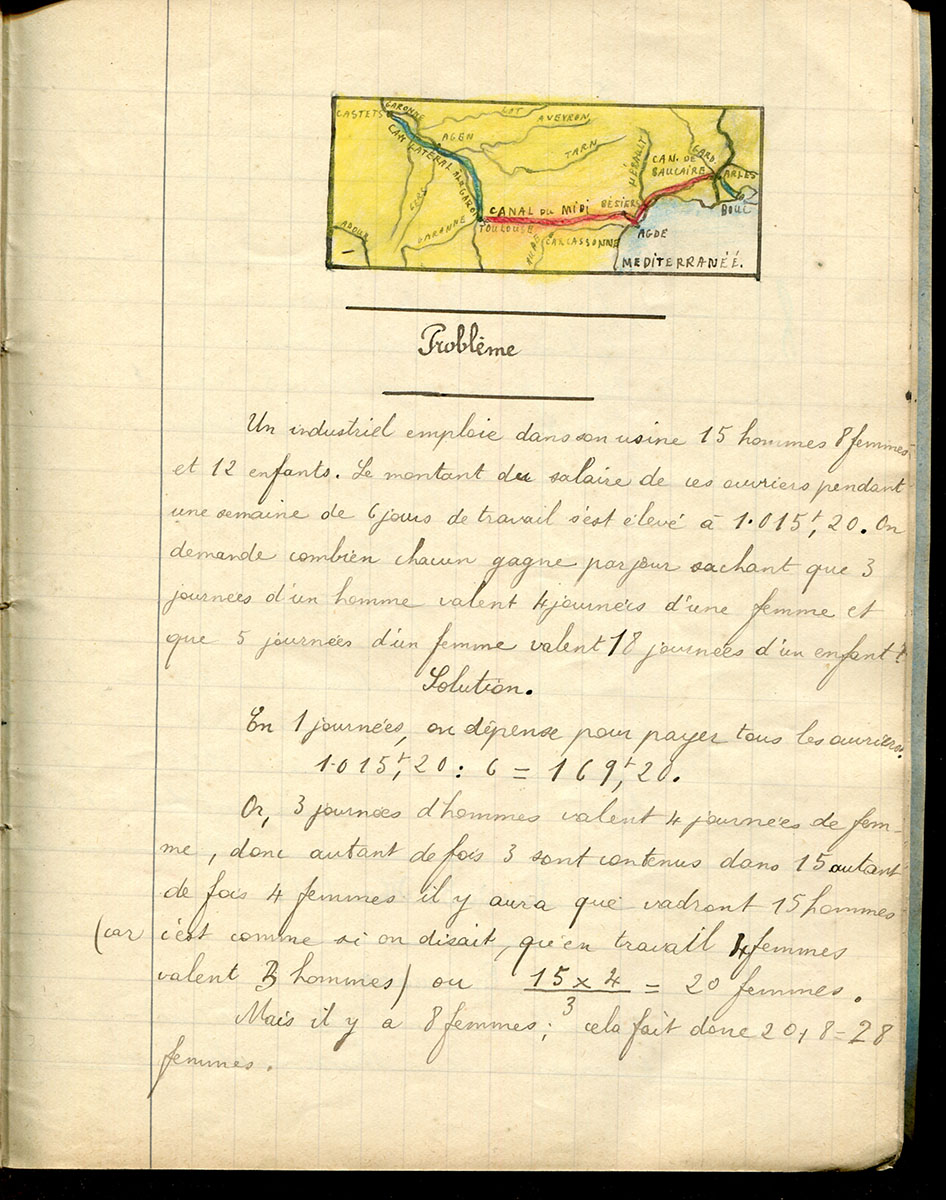 GARONNE
CASTETS
LOT
AVEYRON
AGEN
TARN
CAN. LATERAL A LA GARON
GERS
L'HÉRAULT
GARD
CAN. DE
BAUCAIRE
ARLES
BOUC
CANAL DU MIDI
BÉSIERS
TOULOUSE
GARONNE
ADOUR
CARCASSONNE
AGDE
MEDITERRANÉÉ.
Problème
Un industriel emploie dans son usine 15 hommes 8 femmes
et 12 enfants. Le montant du salaire de ces ouvriers pendant
une semaine de 6 jours de travail s'est élevé à 1.015f,20. On
demande combien chacun gagne par jour sachant que 3
journées d'un homme valent 4 journées d'une femme et
que 5 journées d'un femme valent 18 journées d'un enfant?
Solution.
En 1 journées, on dépense pour payer tous les ouvriers.
1.015f,20 : 6 = 169f,20.
Or, 3 journées d'hommes valent 4 journées de fem-
me, donc autant de fois 3 sont contenus dans 15 autant
de fois 4 femmes il y aura que vadront 15 hommes
(car c'est comme si on disait, qu'en travail 4 femmes
valent 3 hommes) ou 15 x 4 / 3 = 20 femmes.
Mais il y a 8 femmes; cela fait donc 20 + 8 = 28
femmes.